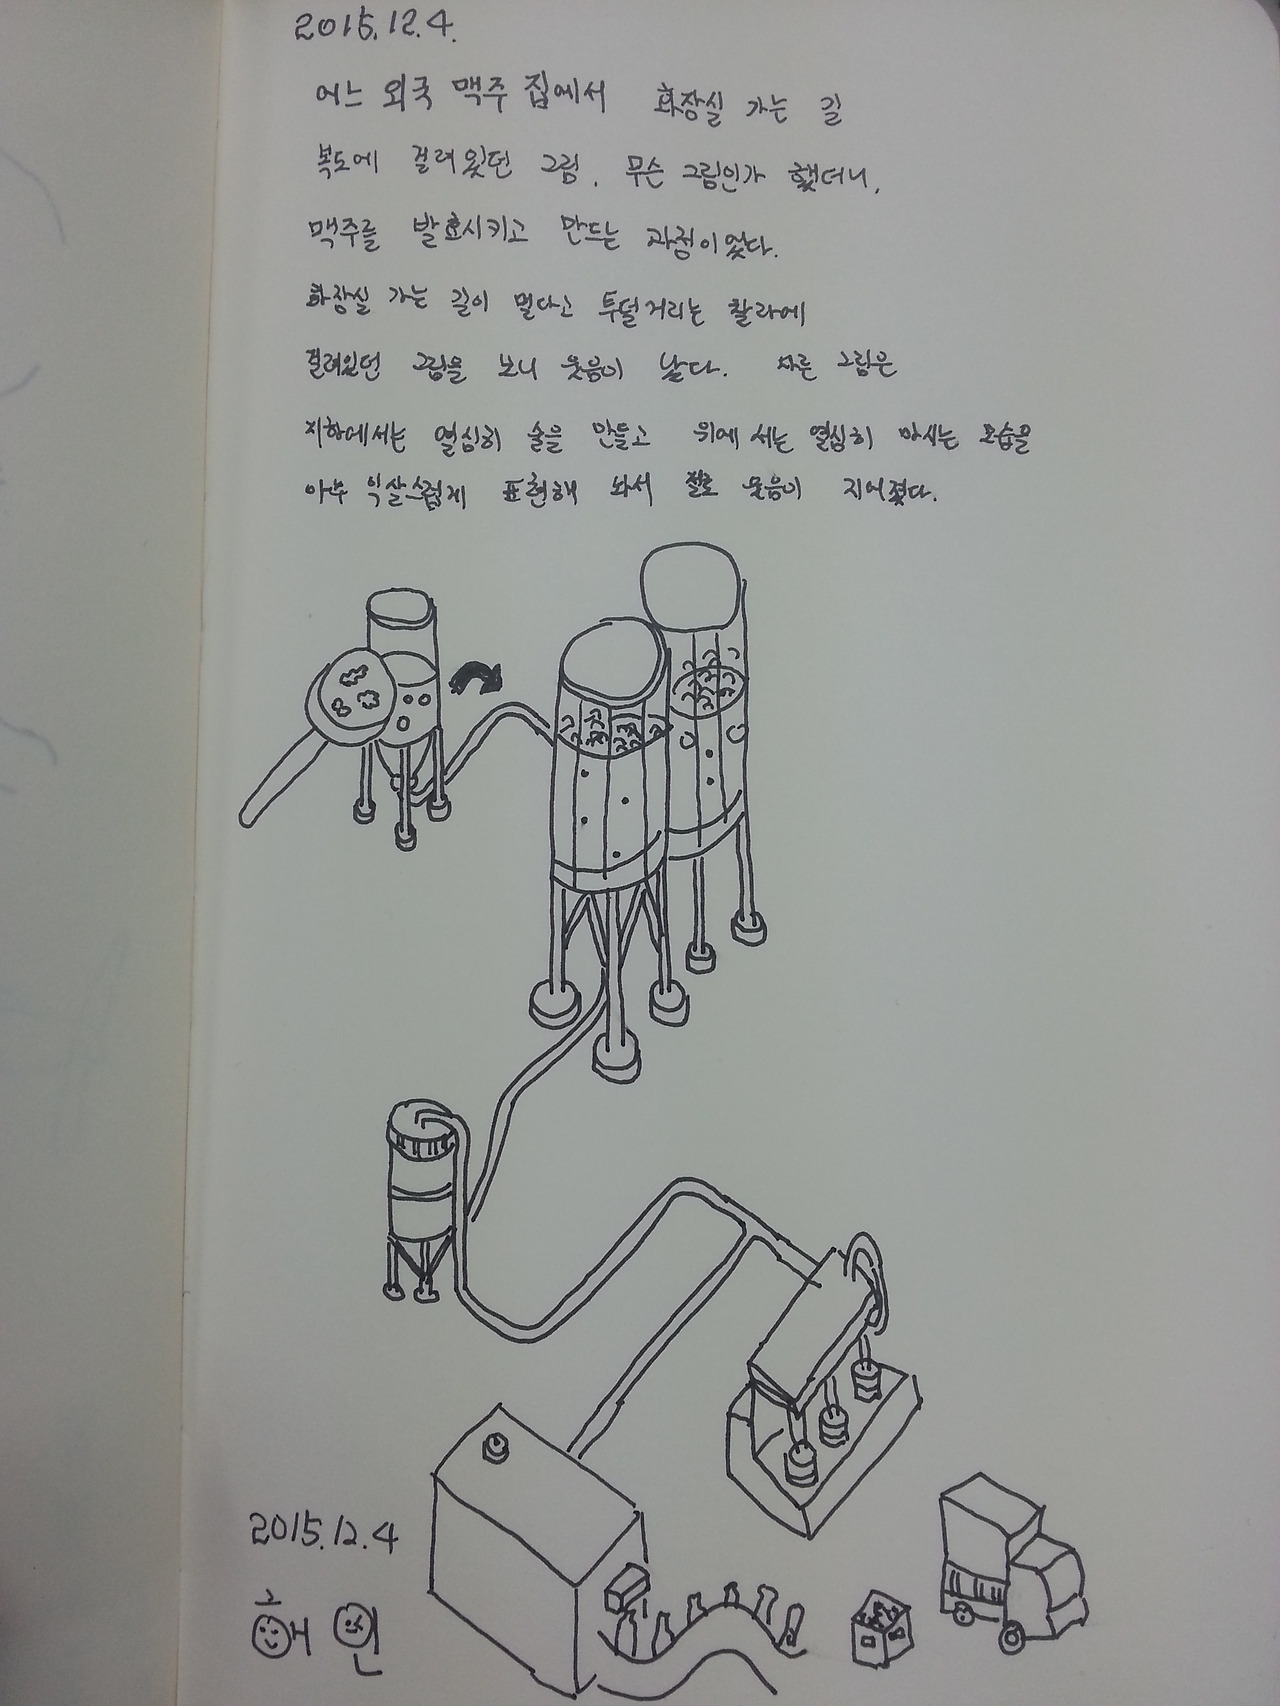 2015.12.4.
어느 외국 맥주 집에서 화장실 가는 길
복도에 걸려있던 그림. 무슨 그림인가 했더니,
맥주를 발효시키고 만드는 과정이었다.
화장실 가는 길이 멀다고 투덜거리는 찰라에
걸려있던 그림을 보니 웃음이 났다. 다른 그림은
지하에서는 열심히 술을 만들고 위에서는 열심히 마시는 모습을
아주 익살스럽게 표현해 놔서 절로 웃음이 지어졌다.
2015.12.4
혜인